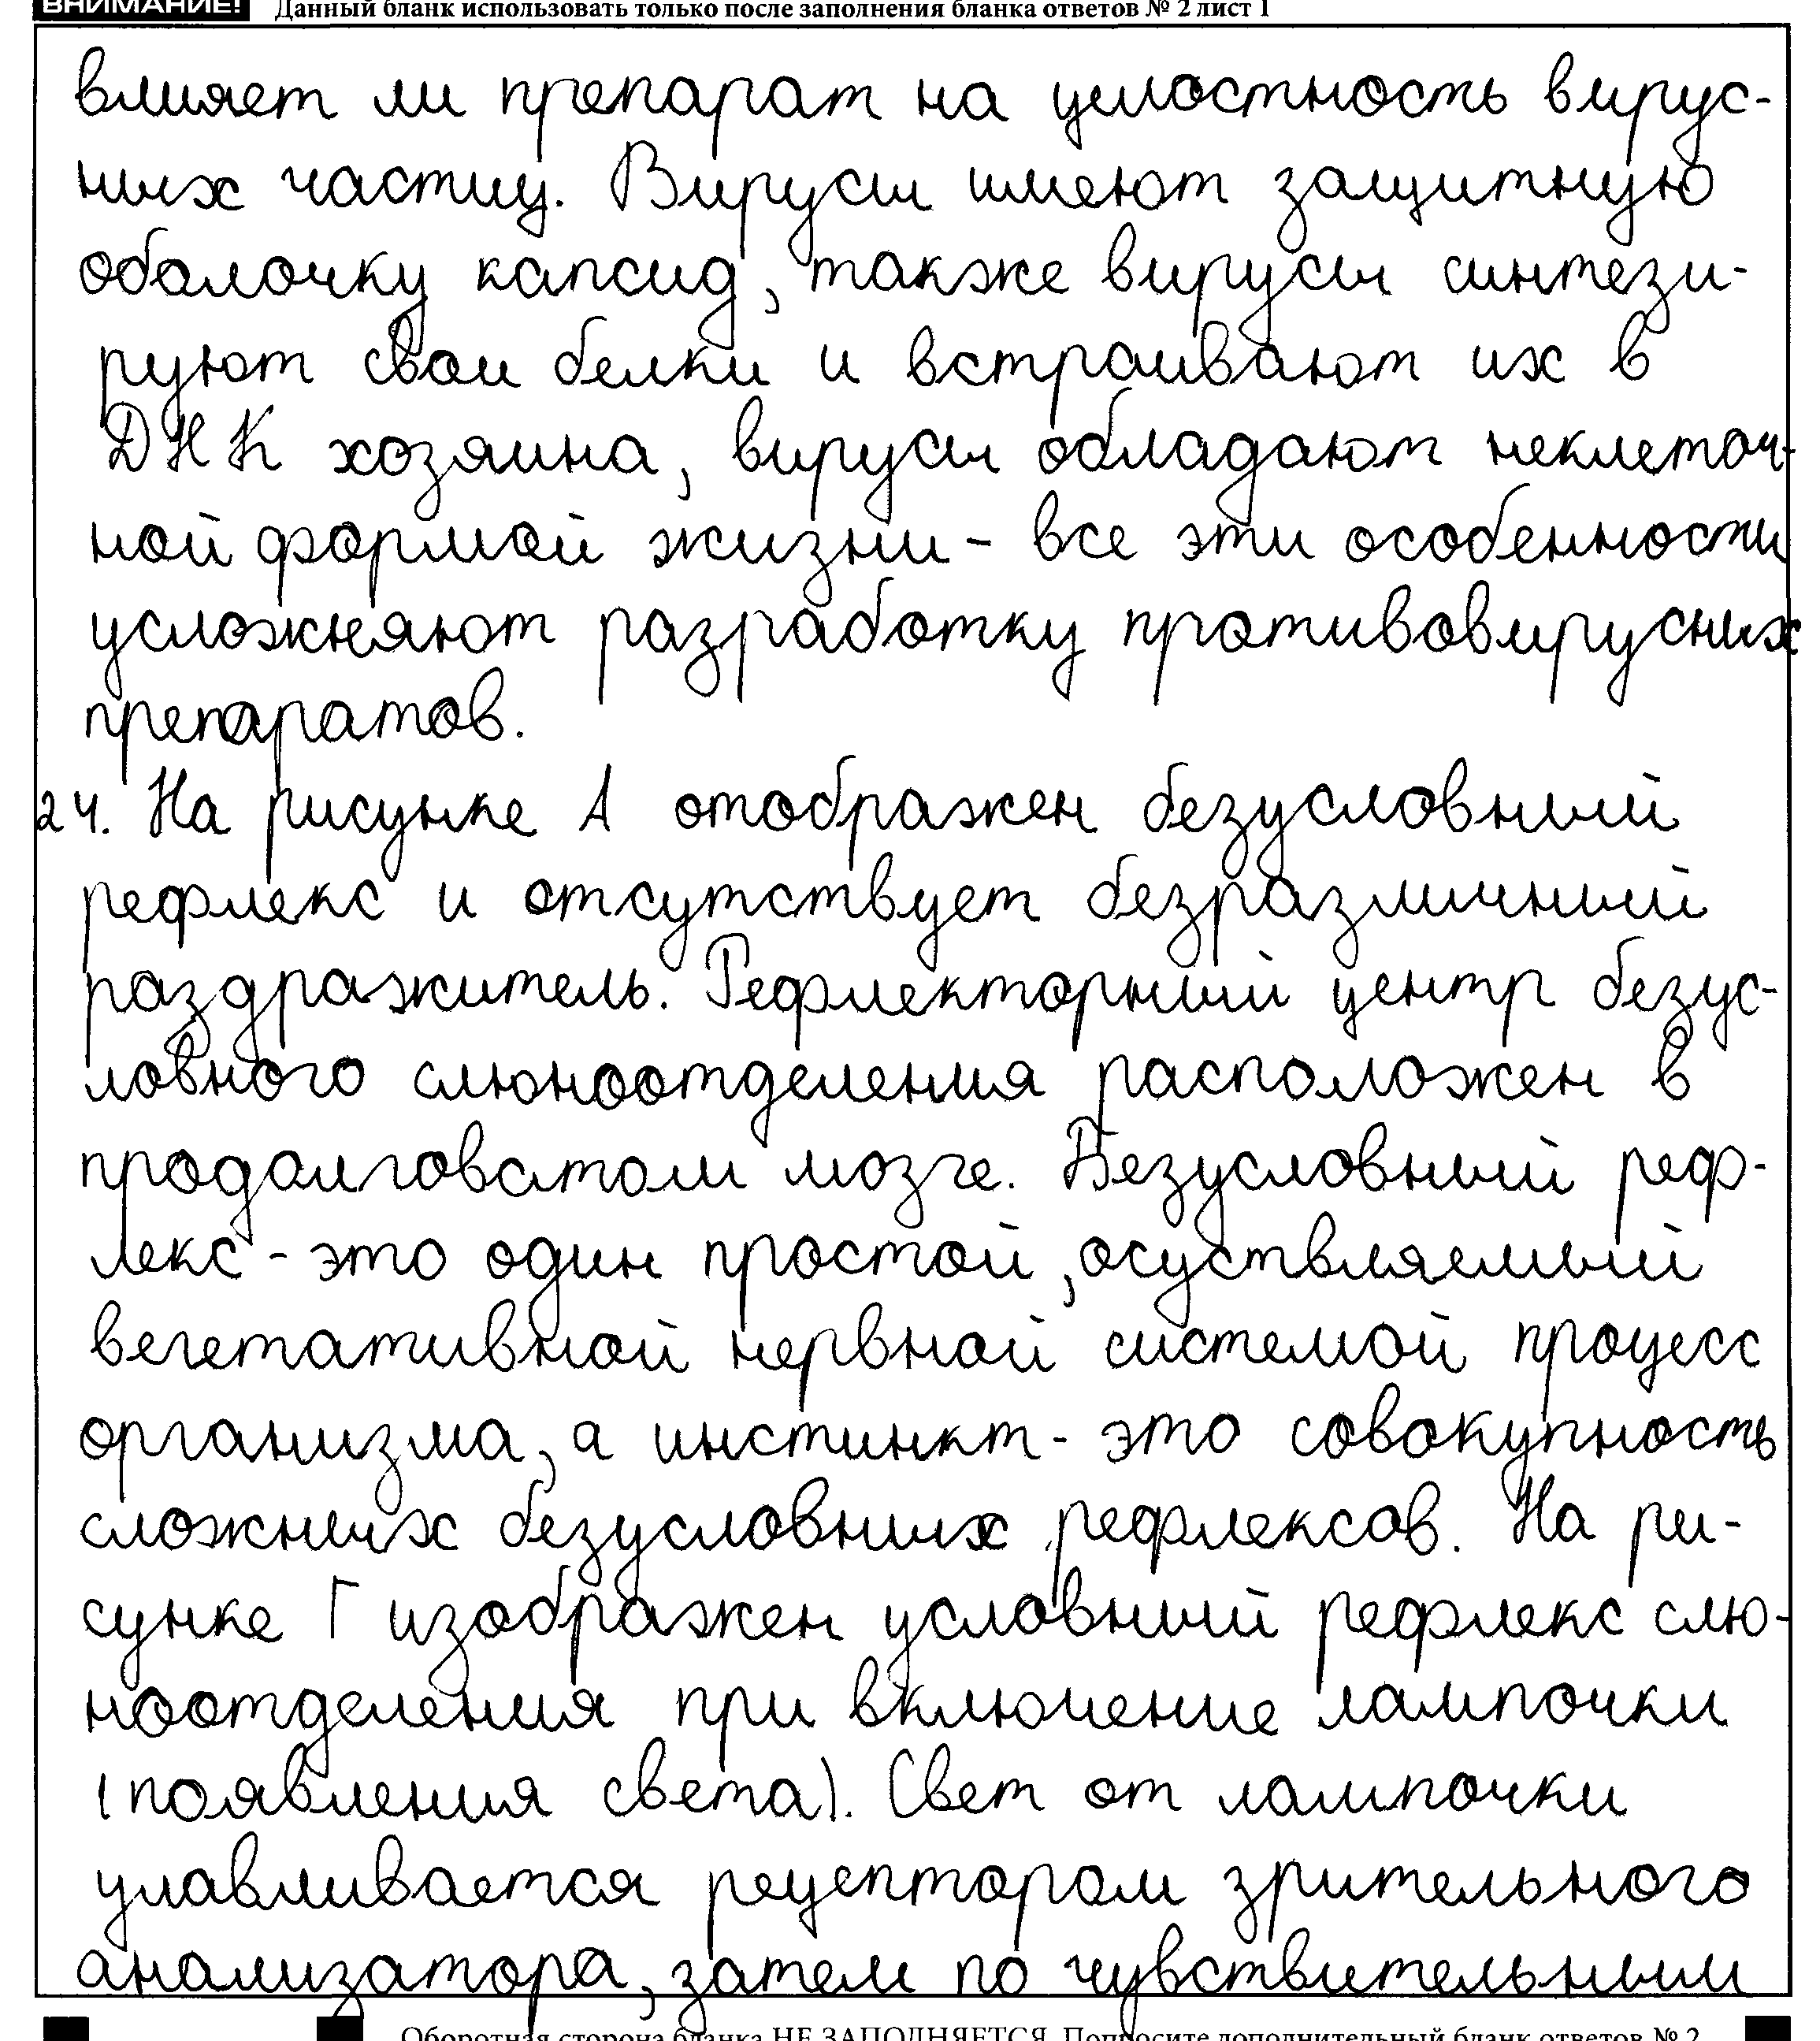 ВНИМАНИЕ! Данный бланк использовать только после заполнения бланка ответов № 2 лист 1
влияет ли препарат на целостность вирус-
ных частиц. Вирусы имеют защитную
оболочку капсид, также вирусы синтези-
руют свои белки и встраивают их в
ДНК хозяина, вирусы обладают неклеточ-
ной формой жизни - все эти особенности
усложняют разработку противовирусных
препаратов.
24. На рисунке А отображен безусловный
рефлекс и отсутствует безразличный
раздражитель. Рефлекторный центр безус-
ловного слюноотделения расположен в
продолговатом мозге. Безусловный реф-
лекс - это один простой, осуствляемый
вегетативной нервной системой процесс
организма, а инстинкт - это совокупность
сложных безусловных рефлексов. На ри-
сунке Г изображен условный рефлекс слю-
ноотделения при включение лампочки
(появления света). Свет от лампочки
улавливается рецептором зрительного
анализатора, затем по чувствительным
Оборотная сторона бланка НЕ ЗАПОЛНЯЕТСЯ. Попросите дополнительный бланк ответов № 2